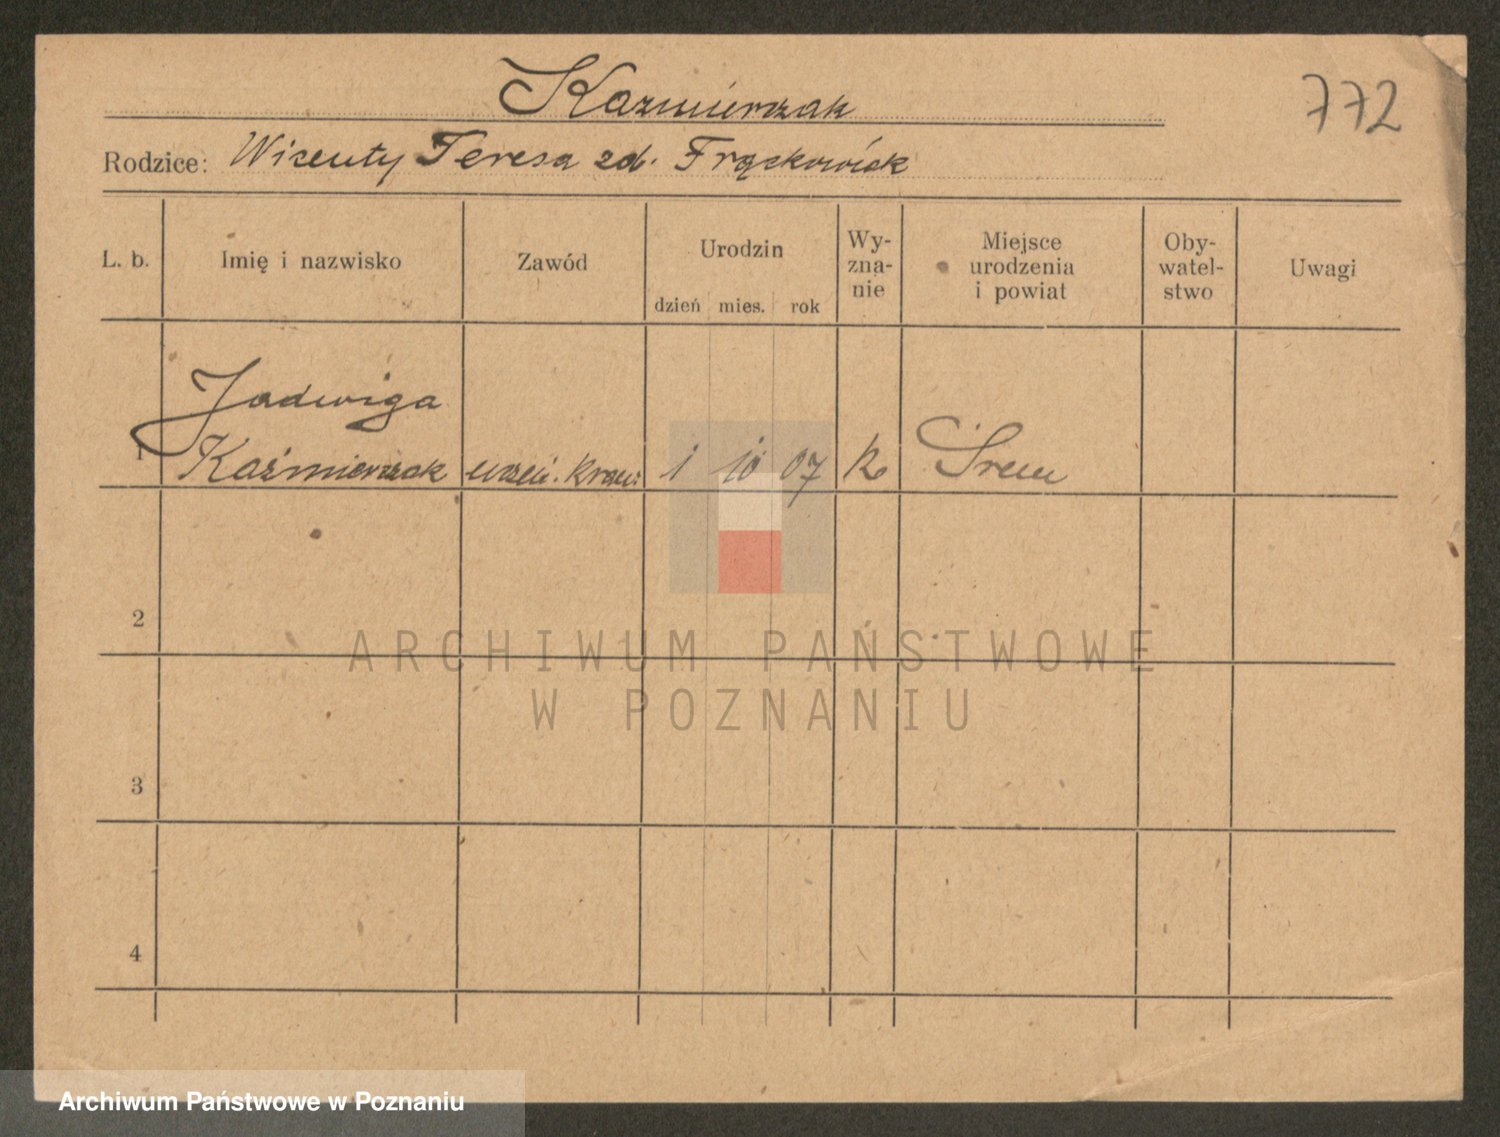 Kazmierczak
772
Rodzice: Wicenty Teresa zd. Frąckowiak
L. b. Imię i nazwisko Zawód Urodzin Wyznanie Miejsce urodzenia i powiat Obywatelstwo Uwagi
dzień mies. rok
Jadwiga
1 Kaźmierczak uczeń. kraw: 1 10 07 k Śrem
2
3
4
ARCHIWUM PAŃSTWOWE
W POZNANIU
Archiwum Państwowe w Poznaniu